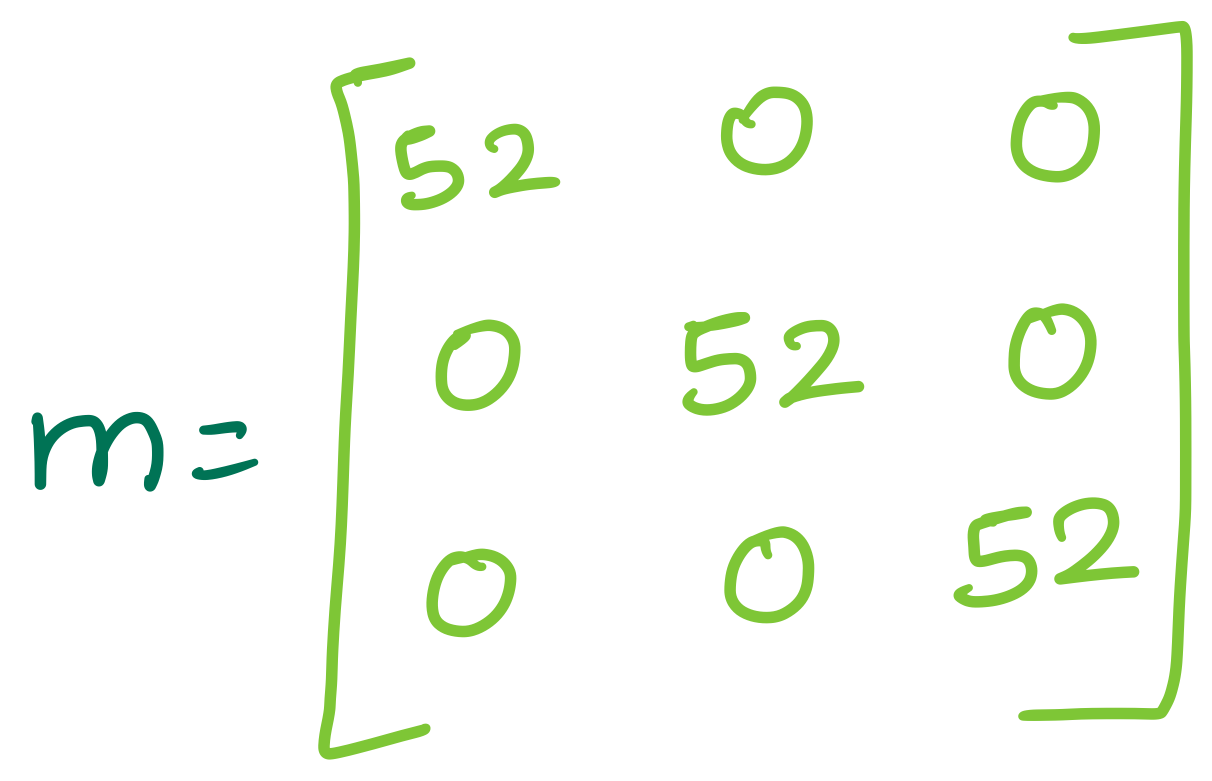 52 0 0
m= 0 52 0
0 0 52